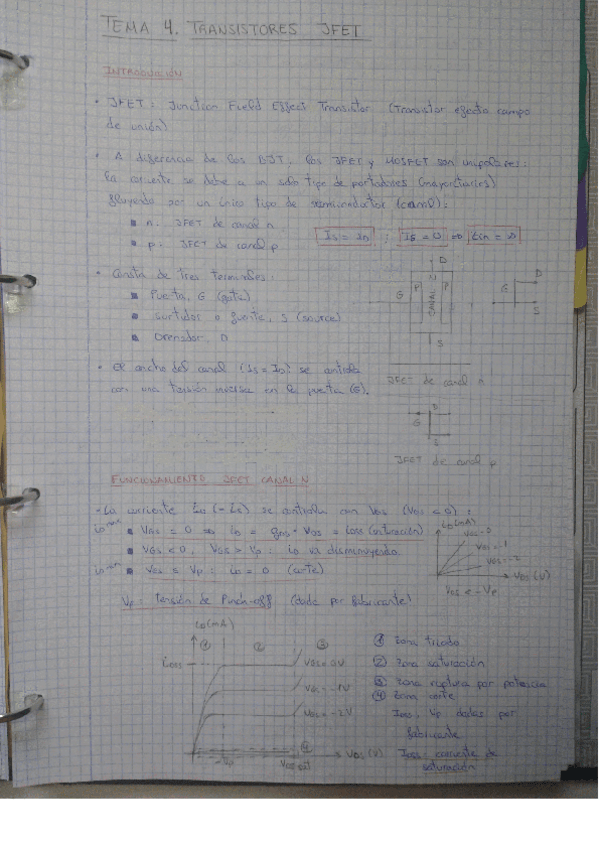 TEMA 4. TRANSISTORES JFET
INTRODUCIÓN
• JFET: Junction Field Effect Transistor (Transistor efecto campo
de unión)
• A diferencia de los BJT, los JFET y MOSFET son unipolares:
la corriente se debe a un solo tipo de portadores (mayoritarios)
fluyendo por un único tipo de semiconductor (canal):
▪ n: JFET de canal n
▪ p: JFET de canal p
IS = ID ; IG = 0 =>
• Consta de tres terminales:
▪ Puerta, G (gate)
▪ Surtidor o fuente, S (source)
▪ Drenador, D
D
G P CANAL N P
S
D
G
S
JFET de canal n
• El ancho del canal (IS = ID) se controla
con una tensión inversa en la puerta (G).
D
G
S
JFET de canal p
FUNCIONAMIENTO JFET CANAL N
• La corriente iD (= iS) se controla con VGS (VGS < 0):
▪ VGS = 0 => iD = · VDS = IDSS (saturación)
▪ VGS < 0, VGS > Vp: iD va disminuyendo
▪ VGS ≤ Vp: iD = 0 (corte)
Vp: Tensión de Pinch-off (dada por fabricante)
iD (mA)
VGS = 0
VGS = -1
VGS = -2
VDS (V)
VDS < -Vp
iD (mA)
① ② ③
IDSS
VGS = 0V
VGS = -1V
VGS = -2V
④
-Vp
VDS (V)
① Zona triodo
② Zona saturación
③ Zona ruptura por potencia
④ Zona corte
IDSS, Vp dadas por
fabricante
IDSS: corriente de
saturación